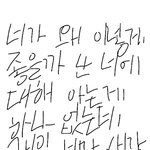 너가 왜 이렇게
좋을까 난 너에
대해 아는게
하나 없는데